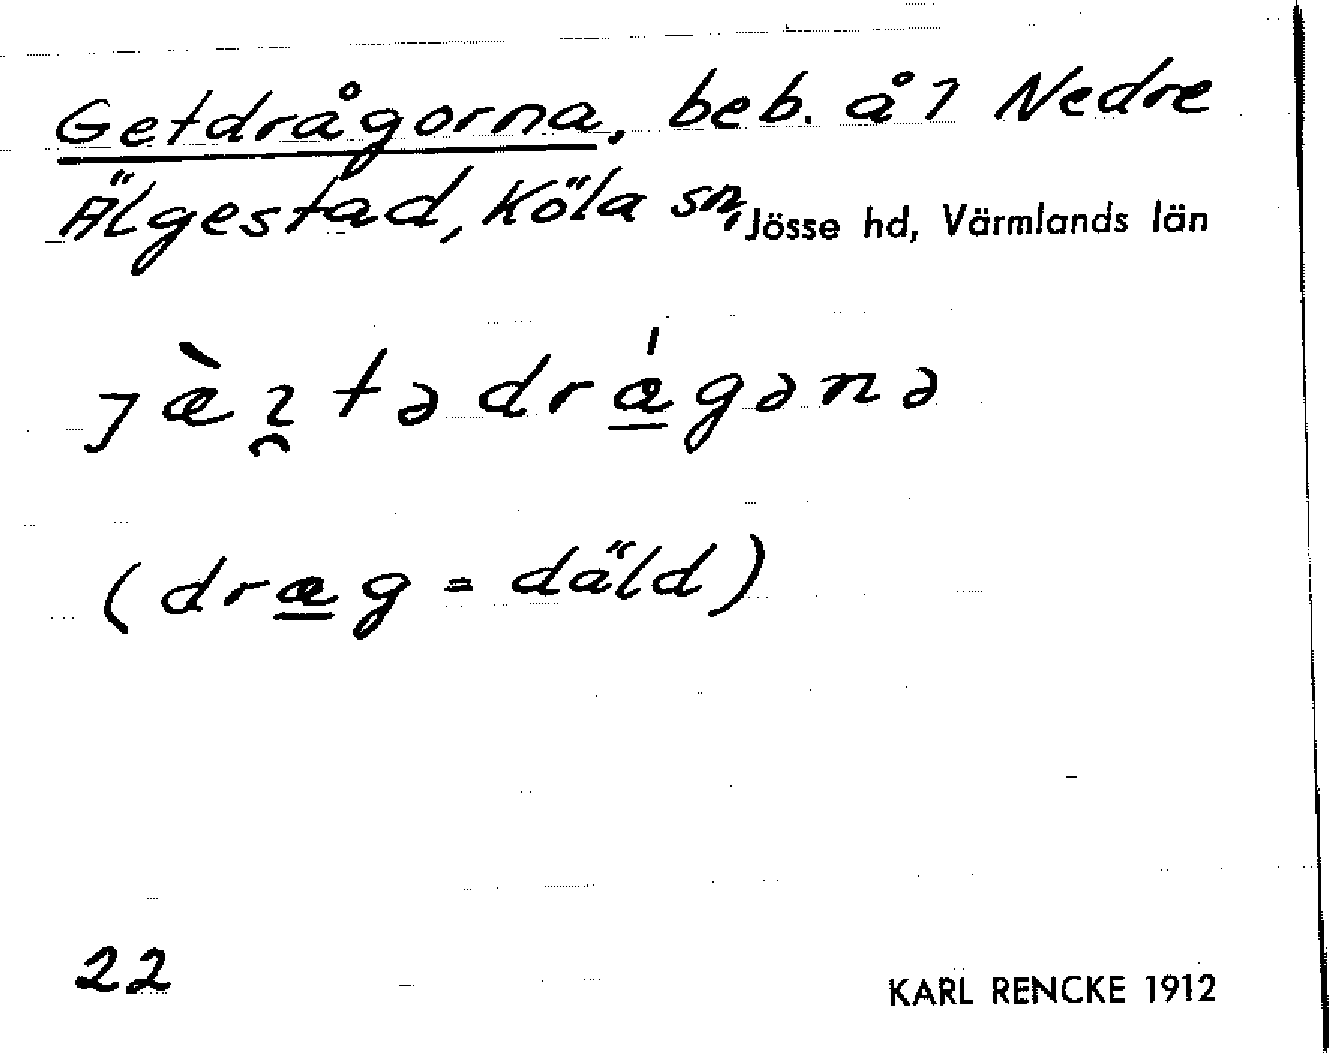 Getdrågorna, beb. å 1 Nedre
Älgestad, Köla sn, Jösse hd, Värmlands län
(dræg = däld)
22
KARL RENCKE 1912